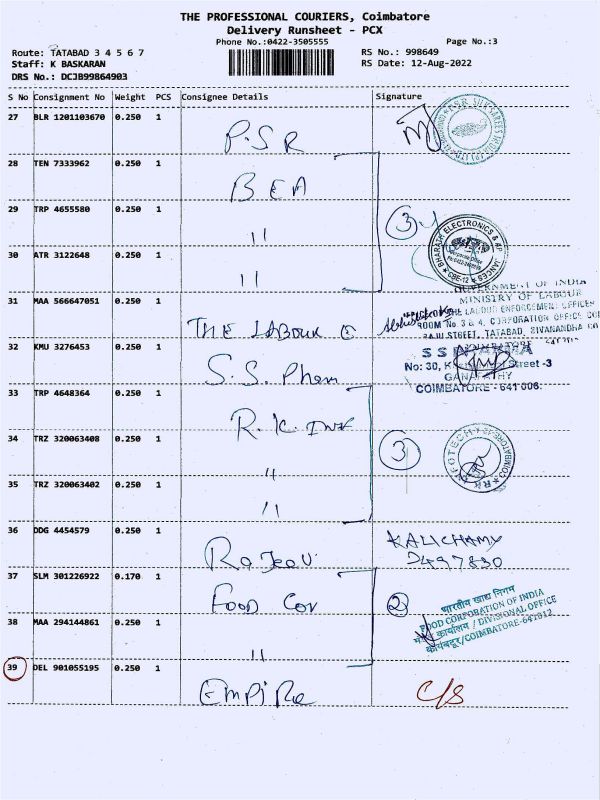 THE PROFESSIONAL COURIERS, Coimbatore
Delivery Runsheet - PCX
Phone No.:0422-3505555
Page No.:3
Route: TATABAD 3 4 5 6 7
RS No.: 998649
Staff: K BASKARAN
RS Date: 12-Aug-2022
DRS No.: DCJB99864903
S No Consignment No Weight PCS Consignee Details Signature
27 BLR 1201103670 0.250 1
P.S.R
28 TEN 7333962 0.250 1
BEA
29 TRP 4655580 0.250 1
11
3
30 ATR 3122648 0.250 1
11
BHARATH ELECTRONICS & APPLIANCES
CBE-12
31 MAA 566647051 0.250 1
THE LABOUR
GOVERNMENT OF INDIA
MINISTRY OF LABOUR
THE LABOUR ENFORCEMENT OFFICER
ROOM No. 3 & 4, CORPORATION OFFICE
STREET, TATABAD, SIVANANDHA
32 KMU 3276453 0.250 1
S.S. Pham
No: 30, Street -3
GANAPATHY
COIMBATORE - 641 006.
33 TRP 4648364 0.250 1
R.K. INF
34 TRZ 320063408 0.250 1
11
3
RK INFOTECH COIMBATORE
35 TRZ 320063402 0.250 1
11
36 DDG 4454579 0.250 1
Rajeev
KALICHAMY
37 SLM 301226922 0.170 1
FOOD COR
2
भारतीय खाद्य निगम
FOOD CORPORATION OF INDIA
कार्यालय / DIVISIONAL OFFICE
कोयंबटूर/COIMBATORE-641012
38 MAA 294144861 0.250 1
11
39 DEL 901055195 0.250 1
EMPIRE
C/S